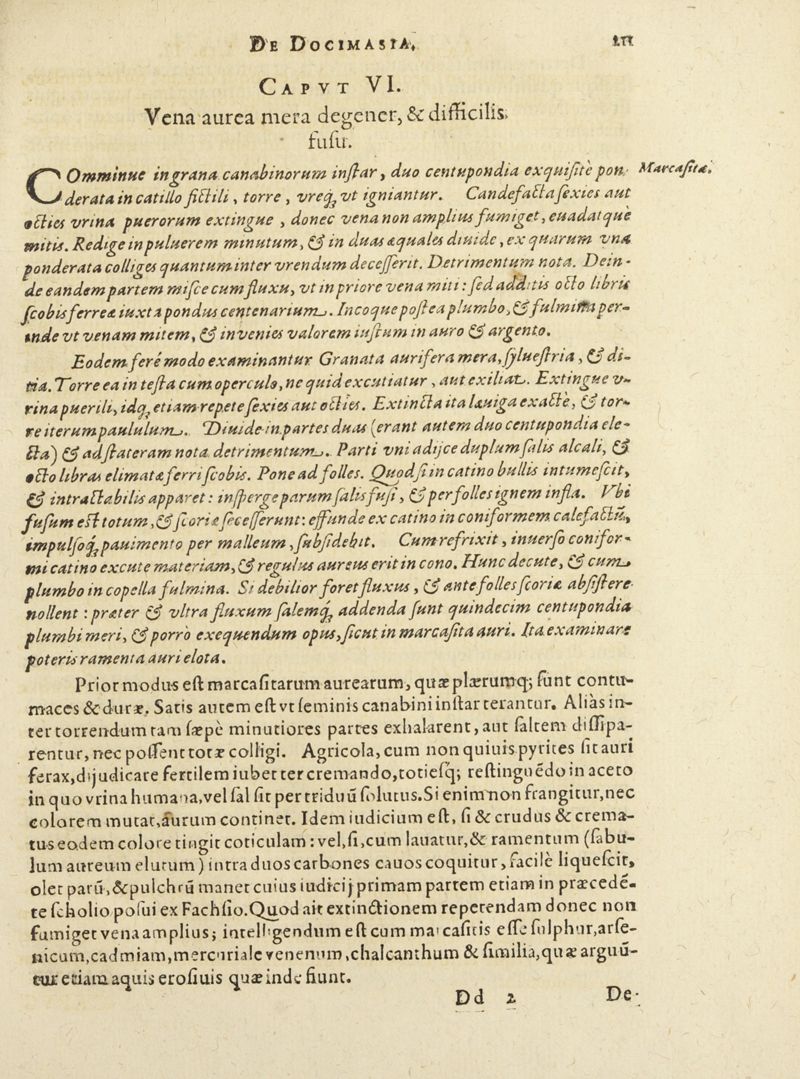 DE DOCIMASIA.
CAPVT VI.
Vena aurea mera degener, & difficilis
fusu.
COmminue in grana canabinorum instar, duo centupondia exquisitè pon- Marcasitæ.
derata in catillo fictili, torre, vreq́; vt igniantur. Candefacta sexies aut
octies vrina puerorum extingue, donec vena non amplius fumiget, euadatque
mitis. Redige in puluerem minutum, & in duas æquales diuide, ex quarum vna
ponderata colliges quantum inter vrendum decesserit. Detrimentum nota. Dein-
de eandem partem misce cum fluxu, vt in priore vena miti: sed additis octo libris
scobis ferreæ iuxta pondus centenarium. Incoque postea plumbo, & fulmina per-
inde vt venam mitem, & invenies valorem iustum in auro & argento.
Eodem ferè modo examinantur Granata aurifera mera, sylvestria, & di-
tia. Torre ea in testa cum operculo, ne quid excutiatur, aut exiliat. Extingue v-
rina puerili, idq́; etiam repete sexies aut octies. Extincta ita læuiga exactè, & tor-
re iterum paululum. Diuide in partes duas (erant autem duo centupondia ele-
cta) & ad stateram nota detrimentum. Parti vni adijce duplum salis alcali, &
octo libras elimatæ ferri scobis. Pone ad folles. Quod si in catino bullis intumescit,
& intractabilis apparet: insperge parum salis fusi, & per folles ignem infla. Vbi
fusum est totum, & scoriæ secesserunt: effunde ex catino in coniformem calefactū,
impulsoq́; pauimento per malleum, subsidebit. Cum refrixit, inuerso conifor-
mi catino excute materiam, & regulus aureus erit in cono. Hunc decute, & cum
plumbo in copella fulmina. Si debilior foret fluxus, & ante folles scoriæ absistere
nollent: præter & vltra fluxum salemq́; addenda sunt quindecim centupondia
plumbi meri, & porrò exequendum opus, sicut in marcasita auri. Ita examinare
poteris ramenta auri elota.
Prior modus est marcasitarum aurearum, quæ plærumq; sunt contu-
maces & duræ. Satis autem est vt seminis canabini instar terantur. Aliàs in-
ter torrendum tam sæpè minutiores partes exhalarent, aut saltem dissipa-
rentur, nec possent totæ colligi. Agricola, cum non quiuis pyrites sit auri
ferax, dijudicare fertilem iubet ter cremando, totiesq; restinguēdo in aceto
in quo vrina humana, vel sal sit per triduū solutus. Si enim non frangitur, nec
colorem mutat, aurum continet. Idem iudicium est, si & crudus & crema-
tus eodem colore tingit coticulam: vel, si, cum lauatur, & ramentum (fabu-
lum aureum elutum) intra duos carbones cauos coquitur, facilè liquescit,
olet parū, & pulchrū manet cuius iudicij primam partem etiam in præcedē-
te scholio posui ex Fachsio. Quod ait extinctionem repetendam donec non
fumiget vena amplius; intelligendum est cum marcasitis esse sulphur, arse-
nicum, cadmiam, mercuriale venenum, chalcanthum & similia, quæ arguū-
tur etiam aquis erosiuis quæ inde fiunt.
Dd 2 De-